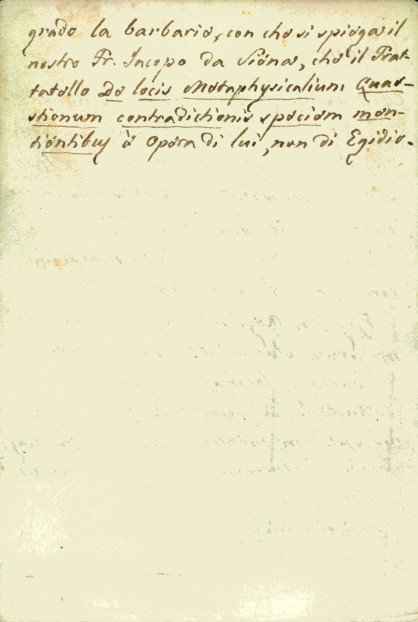 grado la barbarie, con che si spiega il
nostro Fr. Iacopo da Siena, che il Trat-
tatello De locis Metaphysicalium Quae-
stionum contradictionis speciem men-
tientibus è opera di lui, non di Egidio.